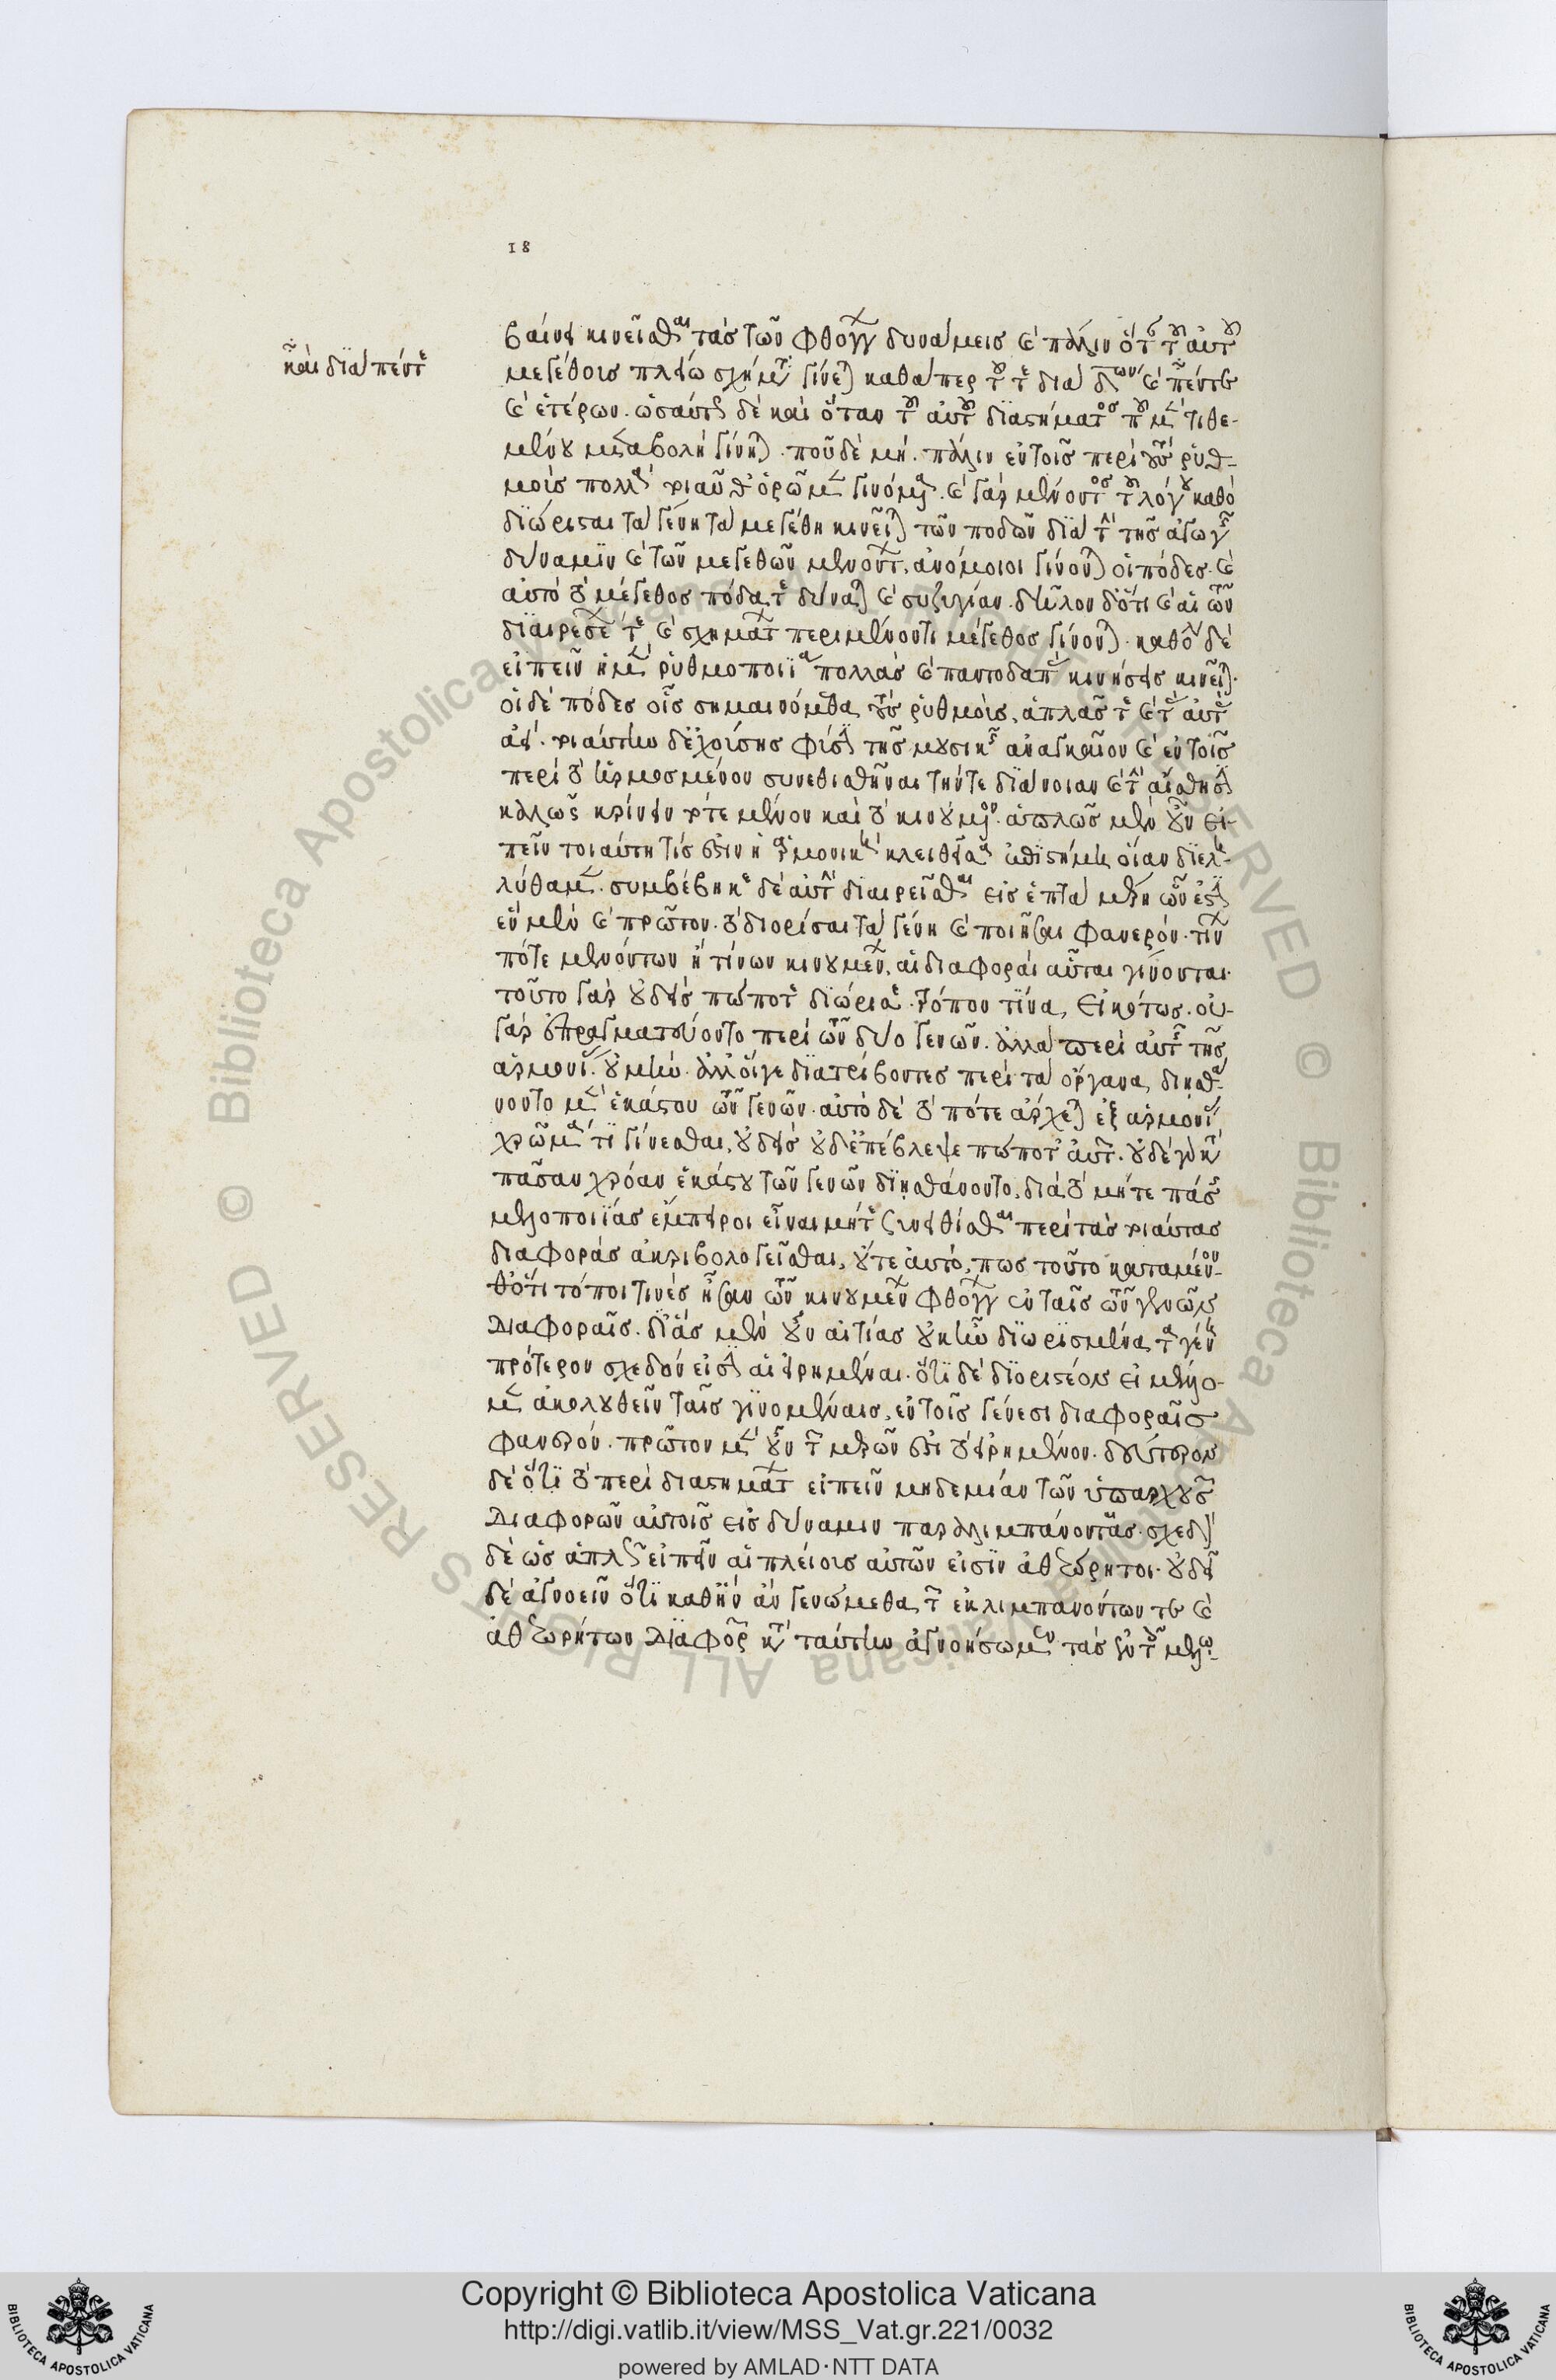 18
καὶ διὰ πέντε
βαίνει κινεῖσθαι τὰς τῶν φθόγγων δυνάμεις καὶ πάλιν ὅταν τοῦ αὐτοῦ
μεγέθους πλείω σχήματα γίνεται καθάπερ τοῦ τε διὰ δ̄ων καὶ πέντε
καὶ ἑτέρων. ὡσαύτως δὲ καὶ ὅταν τοῦ αὐτοῦ διαστήματος ποῦ μὲν τιθε-
μένου μεταβολὴ γίνηται. ποῦ δὲ μή. πάλιν ἐν τοῖς περὶ τοὺς ῥυθ-
μοὺς πολλὰ τοιαῦθ' ὁρῶμεν γινόμενα. καὶ γὰρ μένοντος τοῦ λόγου καθ' ὃ
διώρισται τὰ γένη τὰ μεγέθη κινεῖται τῶν ποδῶν διὰ τὴν τῆς ἀγωγῆς
δύναμιν καὶ τῶν μεγεθῶν μενόντων, ἀνόμοιοι γίνονται οἱ πόδες. καὶ
αὐτὸ τὸ μέγεθος πόδα τε δύναται καὶ συζυγίαν. δῆλον δ' ὅτι καὶ αἱ τῶν
διαιρέσεών τε καὶ σχημάτων περὶ μένον τι μέγεθος γίνονται. καθόλου δὲ
εἰπεῖν ἡ μὲν ῥυθμοποιία πολλὰς καὶ παντοδαπὰς κινήσεις κινεῖται.
οἱ δὲ πόδες οἷς σημαινόμεθα τοὺς ῥυθμοὺς, ἁπλᾶς τε καὶ τὰς αὐτὰς
ἀεί. τοιαύτην δ' ἐχούσης φύσιν τῆς μουσικῆς ἀναγκαῖον καὶ ἐν τοῖς
περὶ τὸ ἡρμοσμένον συνεθισθῆναι τήν τε διάνοιαν καὶ τὴν αἴσθησιν
καλῶς κρίνειν τό τε μένον καὶ τὸ κινούμενον. ἁπλῶς μὲν οὖν εἰ-
πεῖν τοιαύτη τίς ἐστιν ἡ ἁρμονικὴ κληθεῖσα ἐπιστήμη οἵαν διελη-
λύθαμεν. συμβέβηκε δὲ αὐτὴν διαιρεῖσθαι εἰς ἑπτὰ μέρη ὧν ἐστιν
ἓν μὲν καὶ πρῶτον. τὸ διορίσαι τὰ γένη καὶ ποιῆσαι φανερόν. τίνων
πότε μενόντων ἢ τίνων κινουμένων, αἱ διαφοραὶ αὗται γίνονται.
τοῦτο γὰρ οὐδεὶς πώποτε διώρισε. τρόπον τινα, εἰκότως. οὐ
γὰρ ἐπραγματεύοντο περὶ τῶν δύο γενῶν. ἀλλὰ περὶ αὐτῆς τῆς
ἁρμονίας. οὐ μὴν. ἀλλ' οἵγε διατρίβοντες περὶ τὰ ὄργανα, διῃσθά-
νοντο μὲν ἑκάστου τῶν γενῶν. αὐτὸ δὲ τὸ πότε ἄρχεται ἐξ ἁρμονίας
χρῶμά τι γίνεσθαι, οὐδεὶς οὐδ' ἐπέβλεψε πώποτ' αὐτῶν. οὐδὲ γὰρ κατὰ
πᾶσαν χρόαν ἑκάστου τῶν γενῶν διῃσθάνοντο, διὰ τὸ μήτε πάσης
μελοποιίας ἔμπειροι εἶναι μήτε συνειθίσθαι περὶ τὰς τοιαύτας
διαφορὰς ἀκριβολογεῖσθαι, οὔτε αὐτό, πως τοῦτο κατάμενον-
θ' ὅτι τόποι τινές ἦσαν τῶν κινουμένων φθόγγων ἐν ταῖς τῶν γενῶν
διαφοραῖς. δι' ἃς μὲν οὖν αἰτίας οὐκ ἦν διωρισμένα τὰ γένη
πρότερον σχεδόν εἰσιν αἱ εἰρημέναι. ὅτι δὲ διοριστέον εἰ μέλλο-
μεν ἀκολουθεῖν ταῖς γινομέναις, ἐν τοῖς γένεσι διαφοραῖς
φανερόν. πρῶτον μὲν οὖν τῶν μερῶν ἐστι τὸ εἰρημένον. δεύτερον
δὲ ὅτι τὸ περὶ διαστημάτων εἰπεῖν μηδεμίαν τῶν ὑπαρχουσῶν
διαφορῶν αὐτοῖς εἰς δύναμιν παραλιμπάνοντας. σχεδὸν
δὲ ὡς ἁπλῶς εἰπεῖν αἱ πλείους αὐτῶν εἰσὶν ἀθεώρητοι. οὐ δεῖ
δὲ ἀγνοεῖν ὅτι καθ' ἣν ἂν γενώμεθα τῶν ἐκλιμπανουσῶν τε καὶ
ἀθεωρήτων διαφορῶν κατὰ ταύτην ἀγνοήσωμεν τὰς ἐν τοῖς μελω-
Copyright © Biblioteca Apostolica Vaticana
http://digi.vatlib.it/view/MSS_Vat.gr.221/0032
powered by AMLAD·NTT DATA